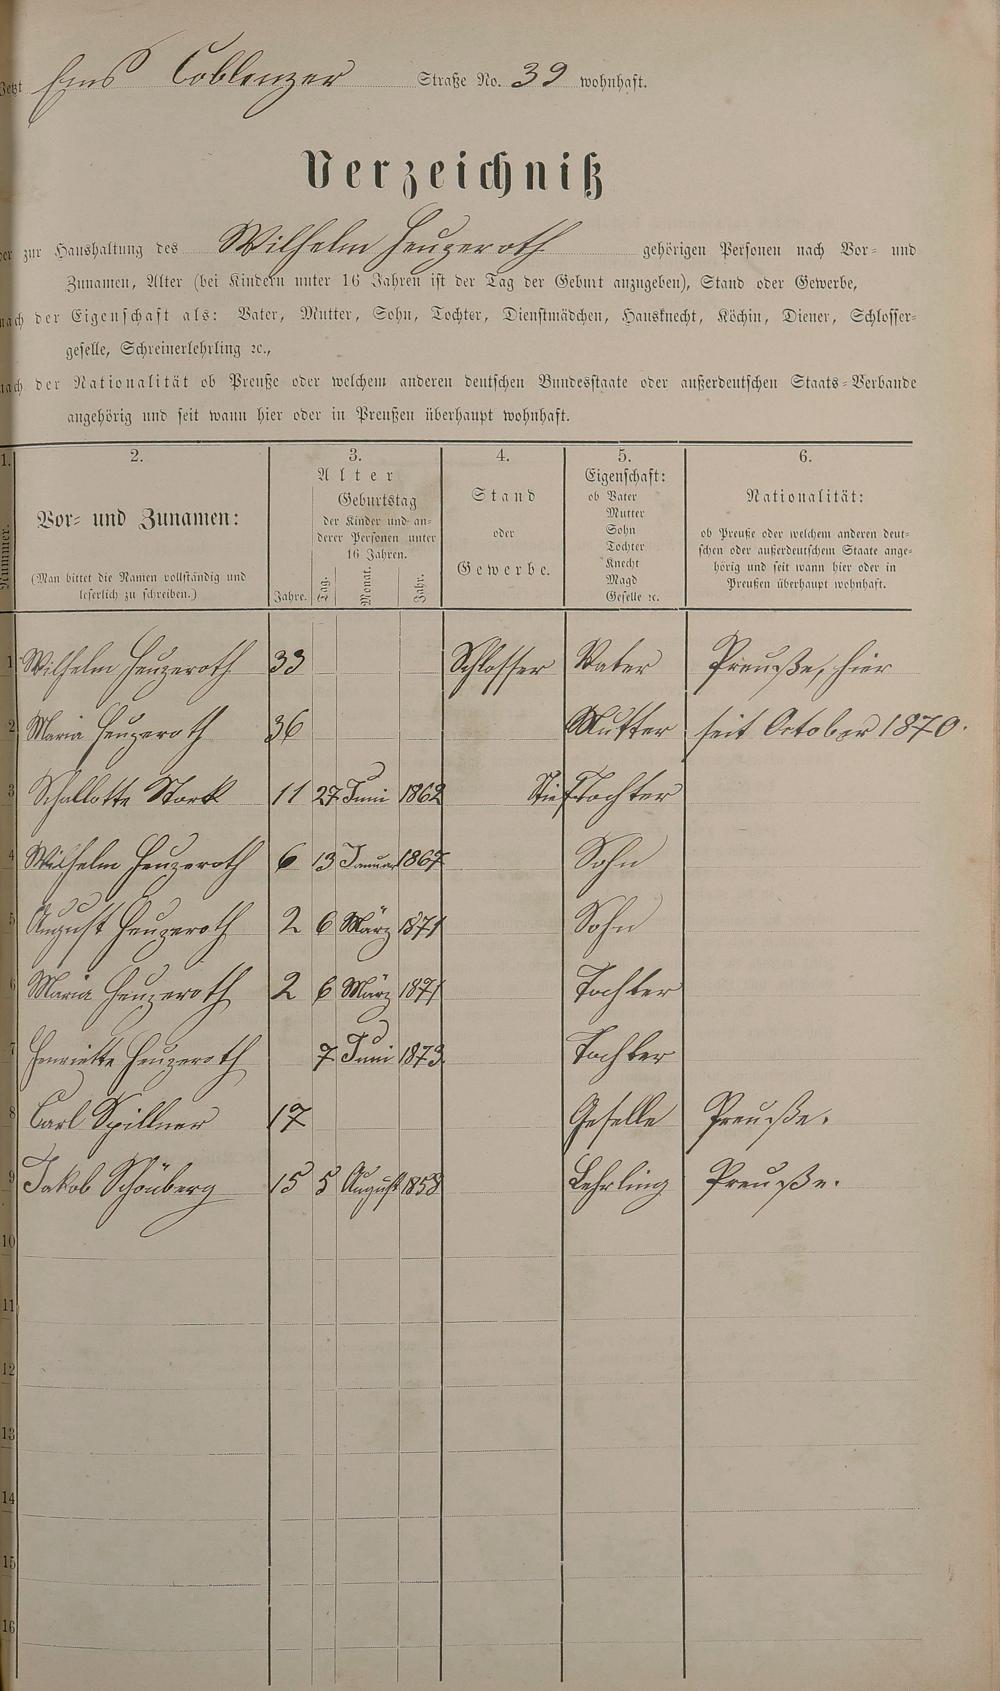 Jetzt Ems Coblenzer Straße No. 39 wohnhaft.
Verzeichniß
der zur Haushaltung des Wilhelm Heuzeroth gehörigen Personen nach Vor- und
Zunamen, Alter (bei Kindern unter 16 Jahren ist der Tag der Geburt anzugeben), Stand oder Gewerbe,
nach der Eigenschaft als: Vater, Mutter, Sohn, Tochter, Dienstmädchen, Hausknecht, Köchin, Diener, Schlosser-
geselle, Schreinerlehrling ꝛc.,
nach der Nationalität ob Preuße oder welchem anderen deutschen Bundesstaate oder außerdeutschen Staats-Verbande
angehörig und seit wann hier oder in Preußen überhaupt wohnhaft.
1.
Nummer.
2.
Vor- und Zunamen:
(Man bittet die Namen vollständig und
leserlich zu schreiben.)
3.
Alter
Geburtstag
der Kinder und an-
derer Personen unter
16 Jahren.
Jahre. Tag. Monat. Jahr.
4.
Stand
oder
Gewerbe.
5.
Eigenschaft:
ob Vater
Mutter
Sohn
Tochter
Knecht
Magd
Geselle ꝛc.
6.
Nationalität:
ob Preuße oder welchem anderen deut-
schen oder außerdeutschem Staate ange-
hörig und seit wann hier oder in
Preußen überhaupt wohnhaft.
1 Wilhelm Heuzeroth 33 Schlosser Vater Preuße, hier
2 Maria Heuzeroth 36 Mutter seit October 1870.
3 Schallotte Stork 11 27 Juni 1862 StiefTochter
4 Wilhelm Heuzeroth 6 13 Januar 1867 Sohn
5 August Heuzeroth 2 6 März 1871 Sohn
6 Maria Heuzeroth 2 6 März 1871 Tochter
7 Henriette Heuzeroth 7 Juni 1873 Tochter
8 Carl Spillner 17 Geselle Preuße.
9 Jakob Schönberg 15 5 August 1858 Lehrling Preuße.
10
11
12
13
14
15
16